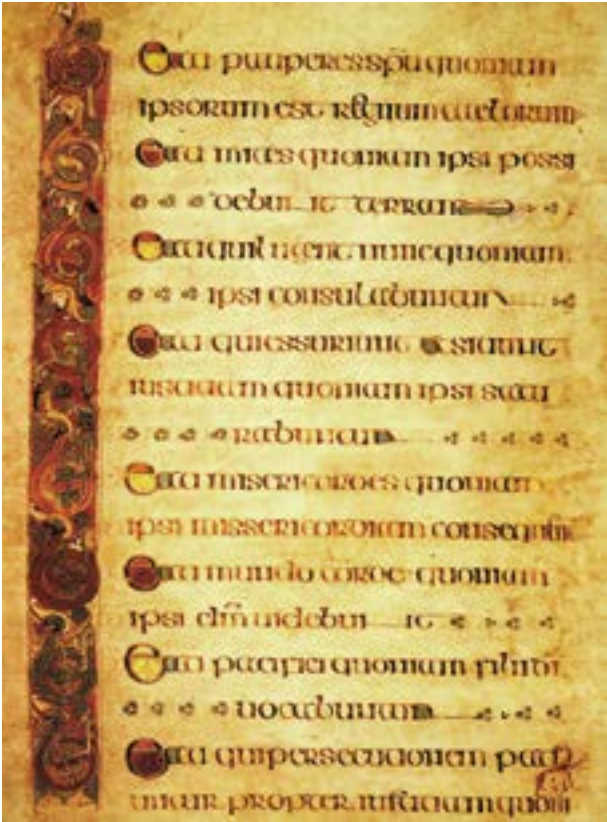 Beati pauperes spu quoniam
ipsorum est regnum caelorum
Beati mites quoniam ipsi possi
debunt terram
Beati qui lugent nunc quoniam
ipsi consulabuntur
Beati qui essuriunt & sitiunt
iustitiam quoniam ipsi satu
rabuntur
Beati misericordes quoniam
ipsi missericordiam consequen
Beati mundo corde quoniam
ipsi dm videbunt
Beati pacifici quoniam filii di
vocabuntur
Beati qui persecutionem pati
untur propter iustitiam quoni